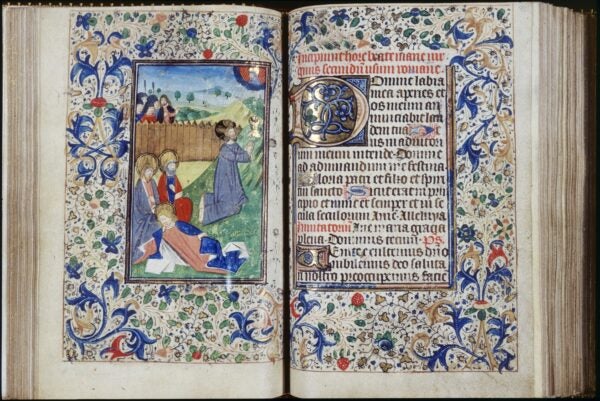 Incipiunt hore beate marie uir
ginis secundū usum romane
Domine labia
mea apries et
os meum an
nunciabit lau
dem tuā
in adiutori
um meum intende· Domine
ad adiuuandum me festina
Gloria patri et filio et spiri
tui sancto Sicut erat in prin
cipio et nunc et semper et in se
cula seculorum Amē Alleluya
Inuitatoriū Aue maria gracia
plena· Dominus tecum· Ps
Venite exultemus dño
iubilemus deo saluta
ri nostro preoccupemus facie